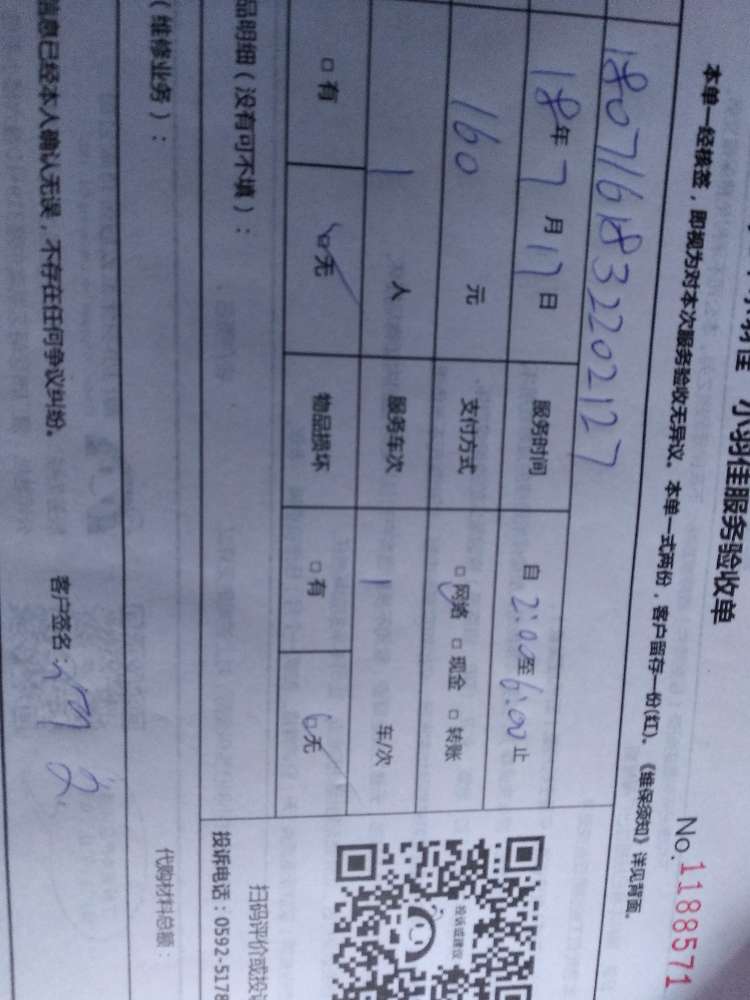 小羽佳服务验收单
No.1188571
本单一经核签，即视为对本次服务验收无异议。本单一式两份，客户留存一份(红)。《维保须知》详见背面。
1807161832202127
18年7月17日 服务时间 自2:00至6:00止
160元 支付方式 □网络 □现金 □转账
1人 服务车次 1车/次
□有 □无 物品损坏 □有 □无
品明细（没有可不填）：
扫码评价或投
投诉电话：0592-5178
投诉或建议
（维修业务）：
代购材料总额：
信息已经本人确认无误，不存在任何争议纠纷。 客户签名：